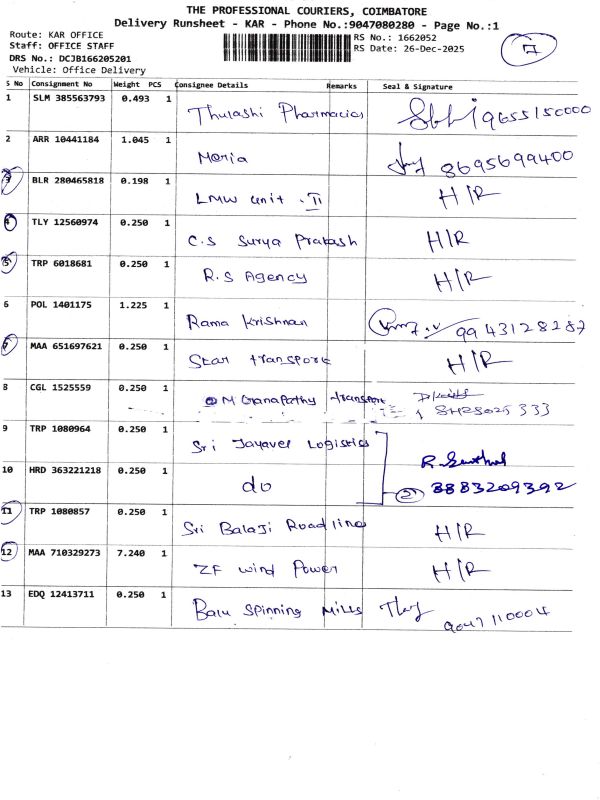 THE PROFESSIONAL COURIERS, COIMBATORE
Delivery Runsheet - KAR - Phone No.:9047080280 - Page No.:1
Route: KAR OFFICE RS No.: 1662052
Staff: OFFICE STAFF RS Date: 26-Dec-2025
DRS No.: DCJB166205201
Vehicle: Office Delivery
7
S No Consignment No Weight PCS Consignee Details Remarks Seal & Signature
1 SLM 385563793 0.493 1 Thulashi Pharmacies 9655150000
2 ARR 10441184 1.045 1 Moria 8695699400
3 BLR 280465818 0.198 1 LMW unit - II H/R
4 TLY 12560974 0.250 1 C.S Surya Prakash H/R
5 TRP 6018681 0.250 1 R.S Agency H/R
6 POL 1401175 1.225 1 Rama Krishnan 9943128287
7 MAA 651697621 0.250 1 Star transport H/R
8 CGL 1525559 0.250 1 M Ganapathy transport
9 TRP 1080964 0.250 1 Sri Jayavel Logistics
10 HRD 363221218 0.250 1 do 2 8883209392
11 TRP 1080857 0.250 1 Sri Balaji Roadline H/R
12 MAA 710329273 7.240 1 ZF wind Power H/R
13 EDQ 12413711 0.250 1 Balu Spinning Mills 9047110004